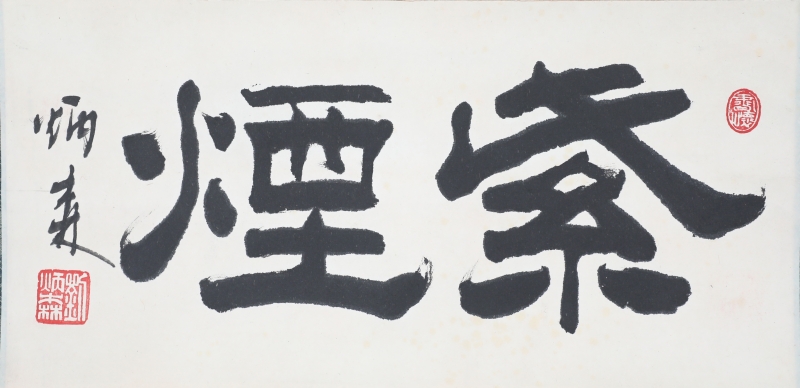 紫煙
炳森
劉炳森